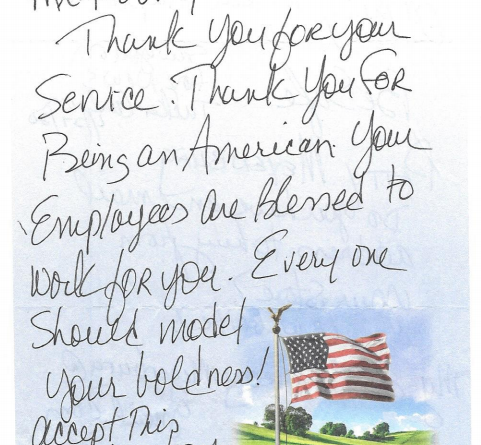 Thank You for your
Service. Thank You For
Being an American. Your
Employees are Blessed to
work for you. Every one
Should model
your boldness!
accept This